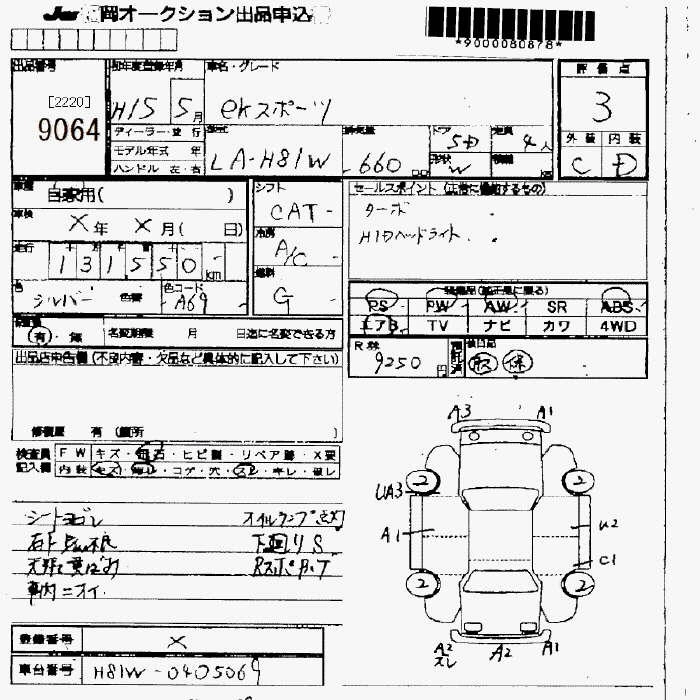 岡オークション出品申込
*9000080878*
出品番号
[2220]
9064
初年度登録年月
H15 5月
車名・グレード
ekスポーツ
評価点
3
外装 内装
C D
ディーラー・並行
モデル年式 年
ハンドル 左・右
型式
LA-H81W
排気量
660
ドア
5D
形状
W
定員
4人
車歴
自家用( )
車検
X年 X月( 日)
走行
131550km
色
シルバー
色替
色コード
A69
シフト
CAT
冷房
A/C
燃料
G
セールスポイント (正常に機能するもの)
ターボ
HIDヘッドライト
PS PW AW SR ABS
エアB TV ナビ カワ 4WD
有・無 名変期限 月 日迄に名変できる方
R券
9250円
預託済
後日品
取 保
出品店申告欄(不良内容・欠品など具体的に記入して下さい)
修復歴 有(箇所 )
検査員記入欄
FW キズ・飛石・ヒビ割・リペア跡・X要
内装 キズ・汚れ・コゲ・穴・スレ・キレ・破レ
シートヨゴレ
オイルランプ点灯
下回りS
車内ニオイ
A3 A1
2 2
UA3
A1
U2
C1
2 2
A2 スレ A2 A1
登録番号 X
車台番号 H81W-0405069